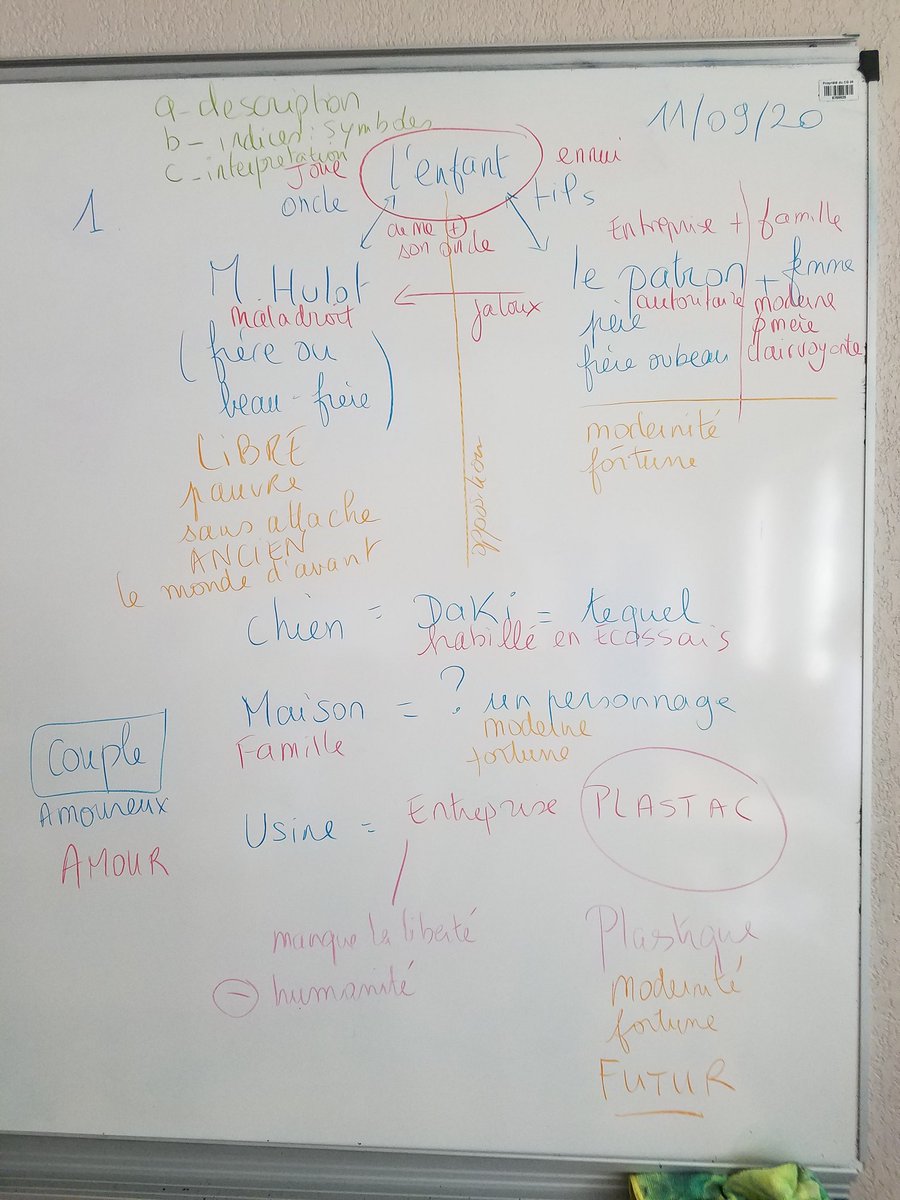 a - description
b - indices : symboles
c - interprétation
11/09/20
1
Joue
l'enfant
ennui
oncle
fils
aime +
son oncle
Entreprise + famille
M. Hulot
le patron + femme
Maladroit
jaloux
autoritaire
moderne
père
mère
(frère ou
beau-frère)
frère ou beau
clairvoyante
LiBRE
pauvre
sans attache
ANCiEN
le monde d'avant
opposition
modernité
fortune
chien = DaKi = tequel
habillé en Ecossais
Maison = ? un personnage
Famille
moderne
fortune
Couple
Amoureux
AMOUR
Usine = Entreprise PLASTAC
manque la liberté
- humanité
Plastique
modernité
fortune
FUTUR